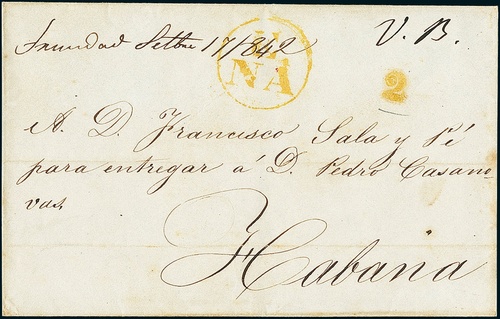 Trinidad Setbre 17/842
V. B.
NA
2
A. D. Francisco Sala y Pé
para entregar á D. Pedro Casano
vas,
Habana